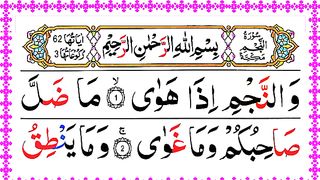 سُوْرَةُ النَّجْمِ مَكِّيَّةٌ
بِسْمِ اللهِ الرَّحْمٰنِ الرَّحِيْمِ
اٰيَاتُهَا 62 رُكُوْعَاتُهَا 3
وَالنَّجْمِ اِذَا هَوٰى ۙ ‎1 مَا ضَلَّ
صَاحِبُكُمْ وَمَا غَوٰى ۚ 2 وَمَا يَنْطِقُ